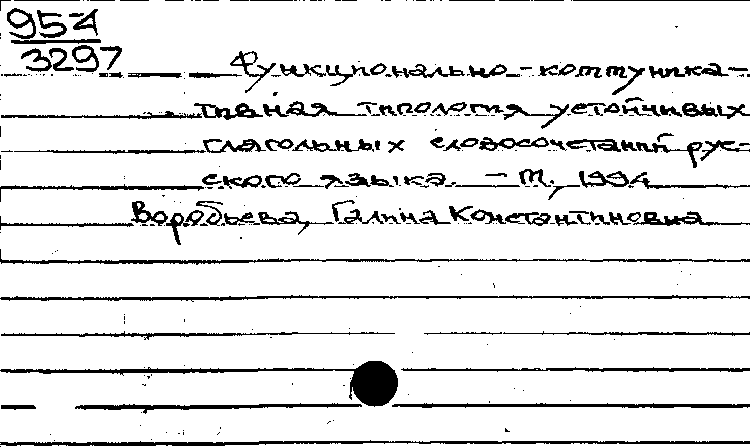 954
3297
Функционально-коммуника-
тивная типология устойчивых
глагольных словосочетаний рус-
ского языка. - М., 1994
Воробьева, Галина Константиновна